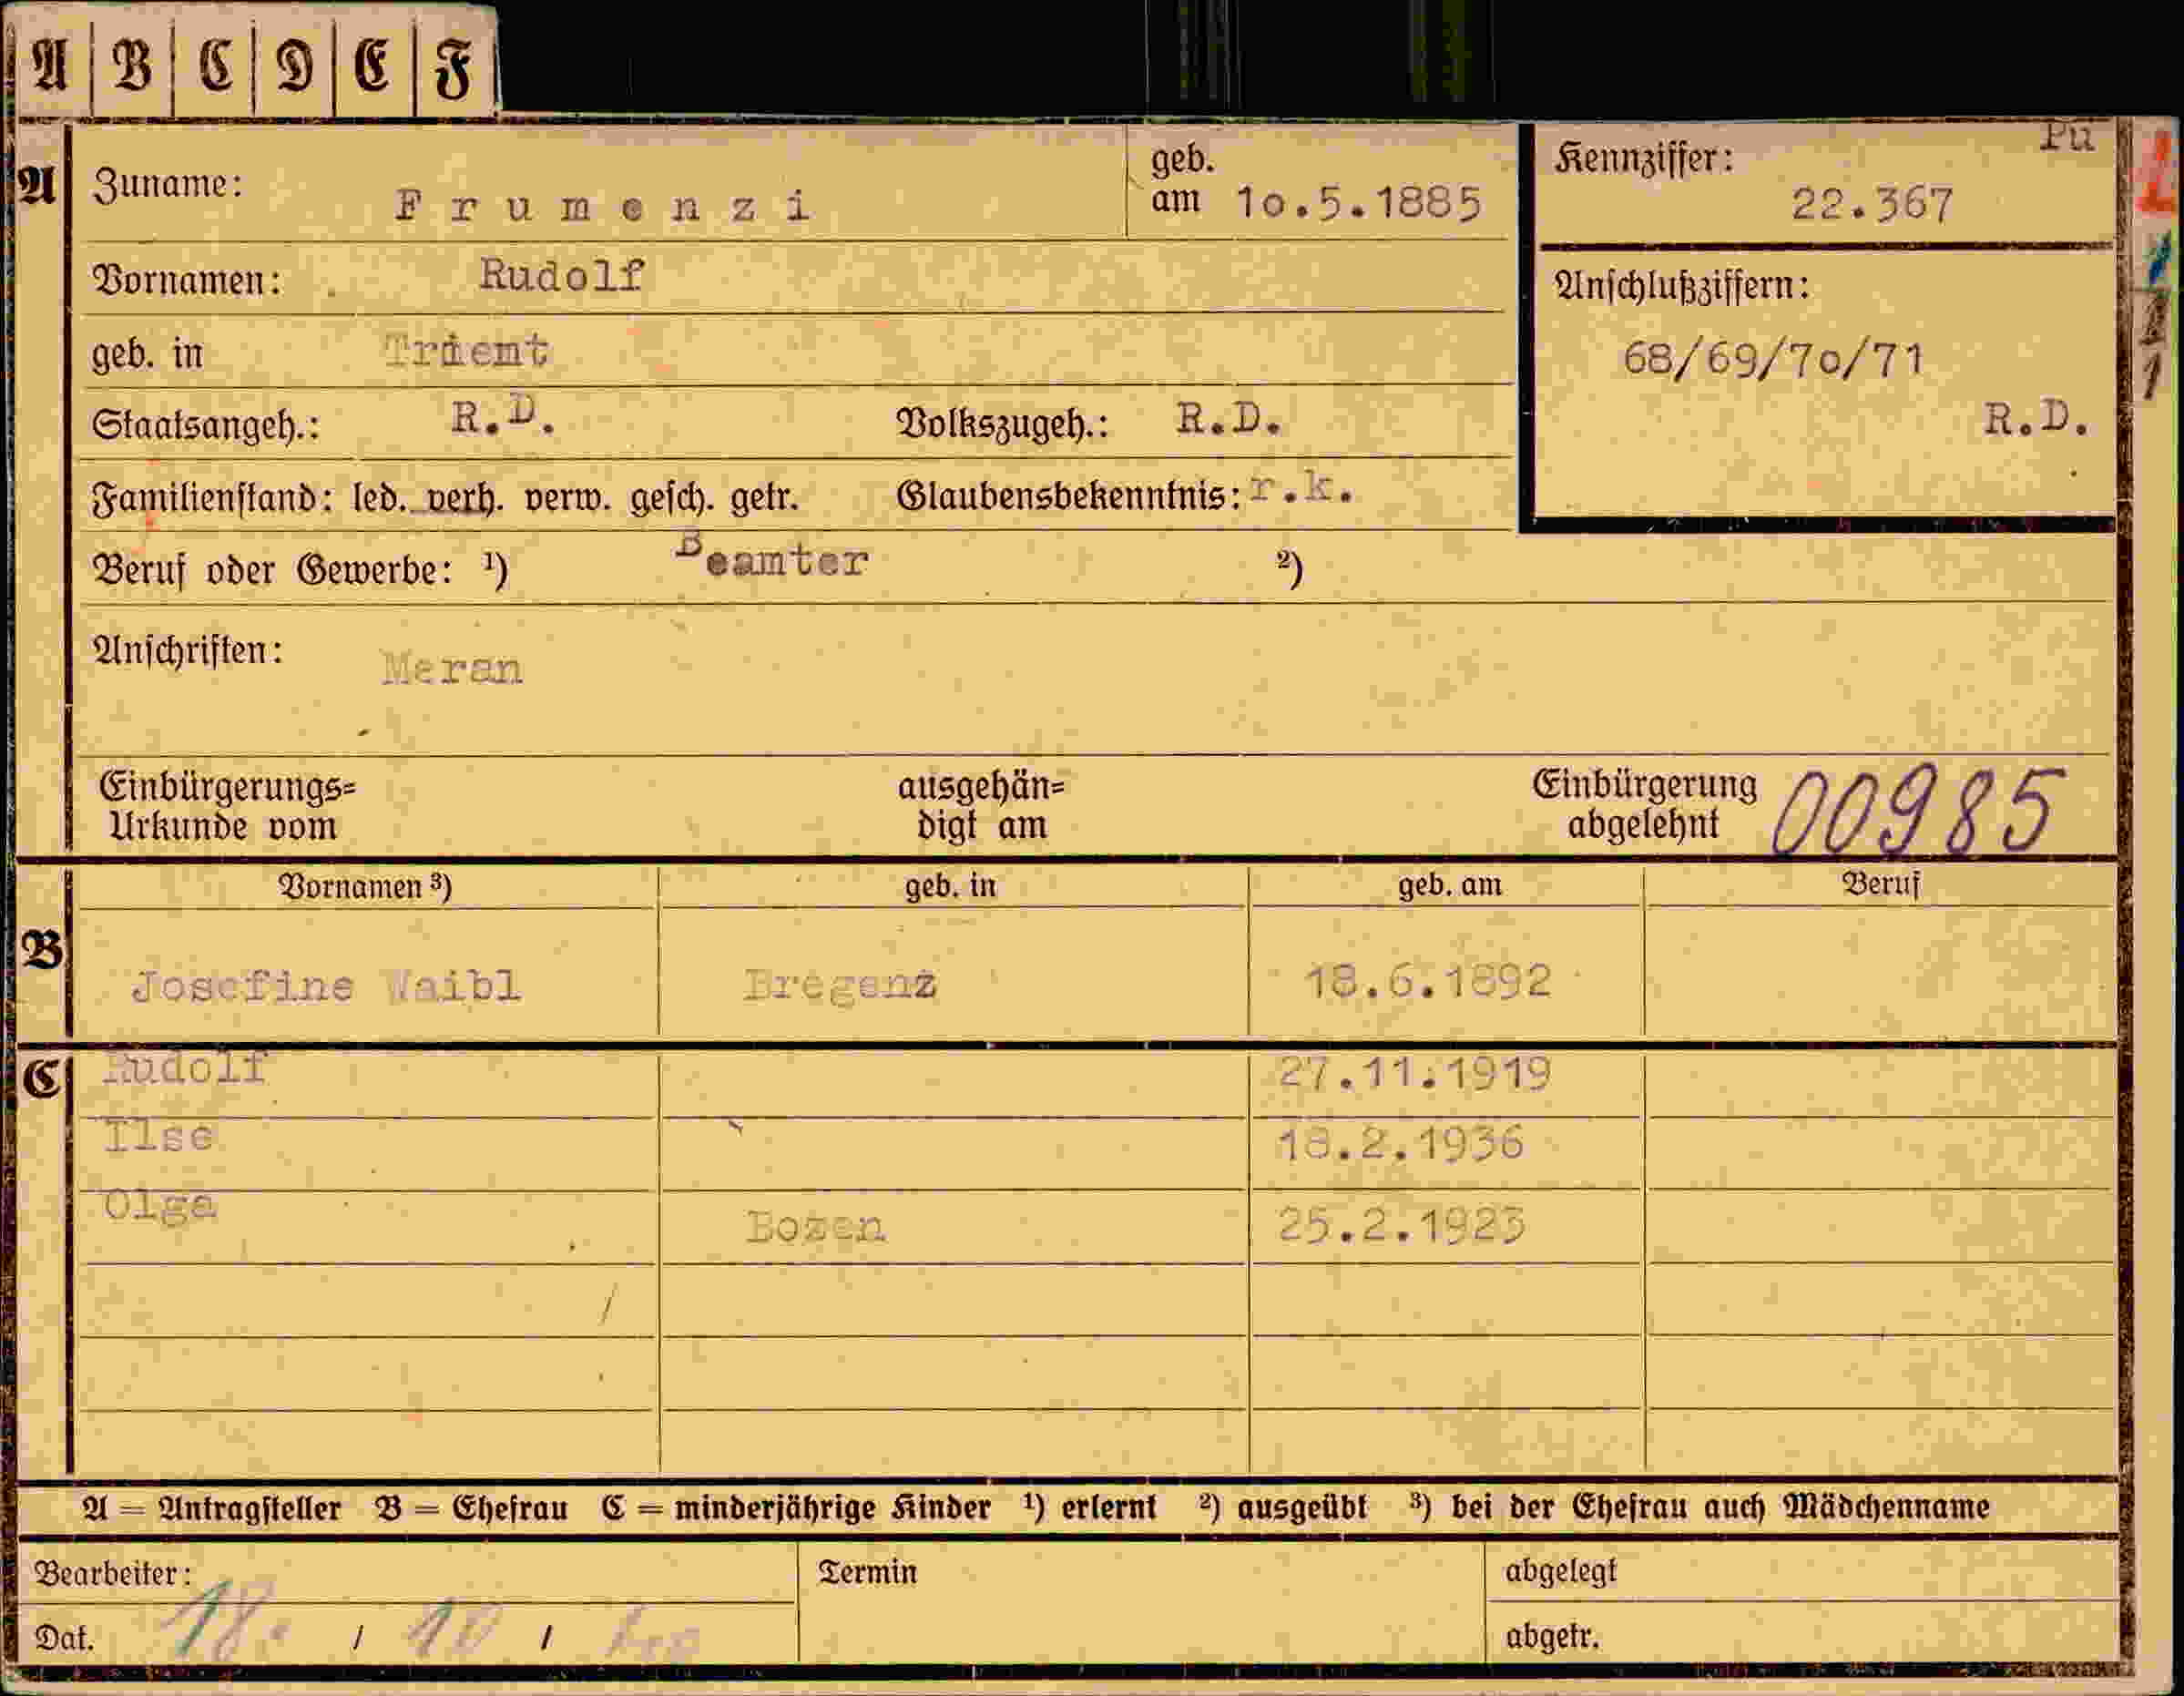 A B C D E F
Pu
A Zuname: Frumenzi geb. am 10.5.1885 Kennziffer: 22.367
Vornamen: Rudolf Anschlußziffern:
geb. in Trient 68/69/70/71
Staatsangeh.: R.D. Volkszugeh.: R.D. R.D.
Familienstand: led. verh. verw. gesch. getr. Glaubensbekenntnis: r.k.
Beruf oder Gewerbe: ¹) Beamter ²)
Anschriften: Meran
Einbürgerungs= ausgehän= Einbürgerung 00985
Urkunde vom digt am abgelehnt
Vornamen ³) geb. in geb. am Beruf
B Josefine Waibl Bregenz 18.6.1892
C Rudolf 27.11.1919
Ilse 18.2.1936
Olga Bozen 25.2.1923
A = Antragsteller B = Ehefrau C = minderjährige Kinder ¹) erlernt ²) ausgeübt ³) bei der Ehefrau auch Mädchenname
Bearbeiter: Termin abgelegt
Dat. 18. / 10 / abgetr.